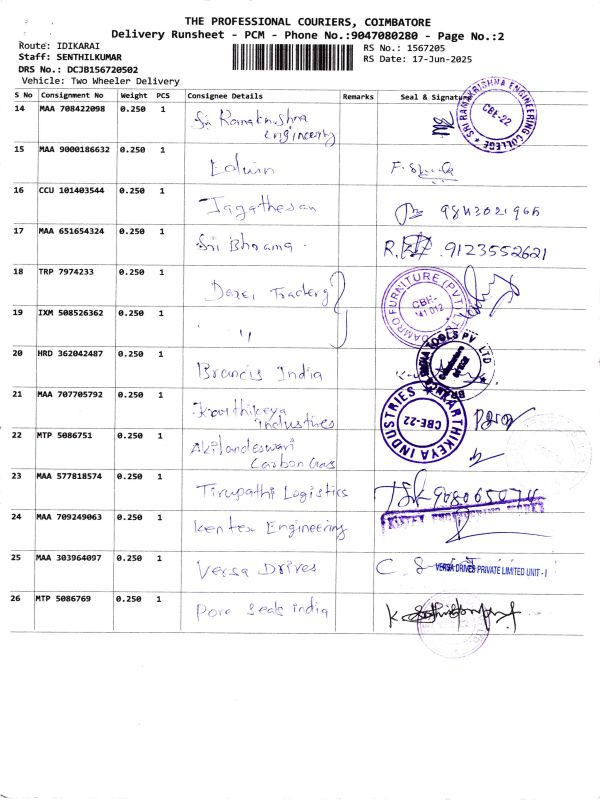 THE PROFESSIONAL COURIERS, COIMBATORE
Delivery Runsheet - PCM - Phone No.:9047080280 - Page No.:2
Route: IDIKARAI
RS No.: 1567205
Staff: SENTHILKUMAR
RS Date: 17-Jun-2025
DRS No.: DCJB156720502
Vehicle: Two Wheeler Delivery
S No Consignment No Weight PCS Consignee Details Remarks Seal & Signature
14 MAA 708422098 0.250 1 Sri Ramakrishna
Engineering
SRI RAMAKRISHNA ENGINEERING COLLEGE
CBE-22
15 MAA 9000186632 0.250 1 Edwin
16 CCU 101403544 0.250 1 Jagathesan
17 MAA 651654324 0.250 1 Sri Bhrama 9123552621
18 TRP 7974233 0.250 1
DAMRO FURNITURE (PVT) LTD
CBE-
641 012
19 IXM 508526362 0.250 1 "
20 HRD 362042487 0.250 1 Brancis India
21 MAA 707705792 0.250 1 Karthikeya
Industries
KARTHIKEYA INDUSTRIES
CBE-22
22 MTP 5086751 0.250 1 Akilandeswari
Carbon Gas
23 MAA 577818574 0.250 1 Tirupathi Logistics
24 MAA 709249063 0.250 1 Kentex Engineering
25 MAA 303964097 0.250 1 Versa Drives
VERSA DRIVES PRIVATE LIMITED UNIT - I
26 MTP 5086769 0.250 1 Pore Seals india